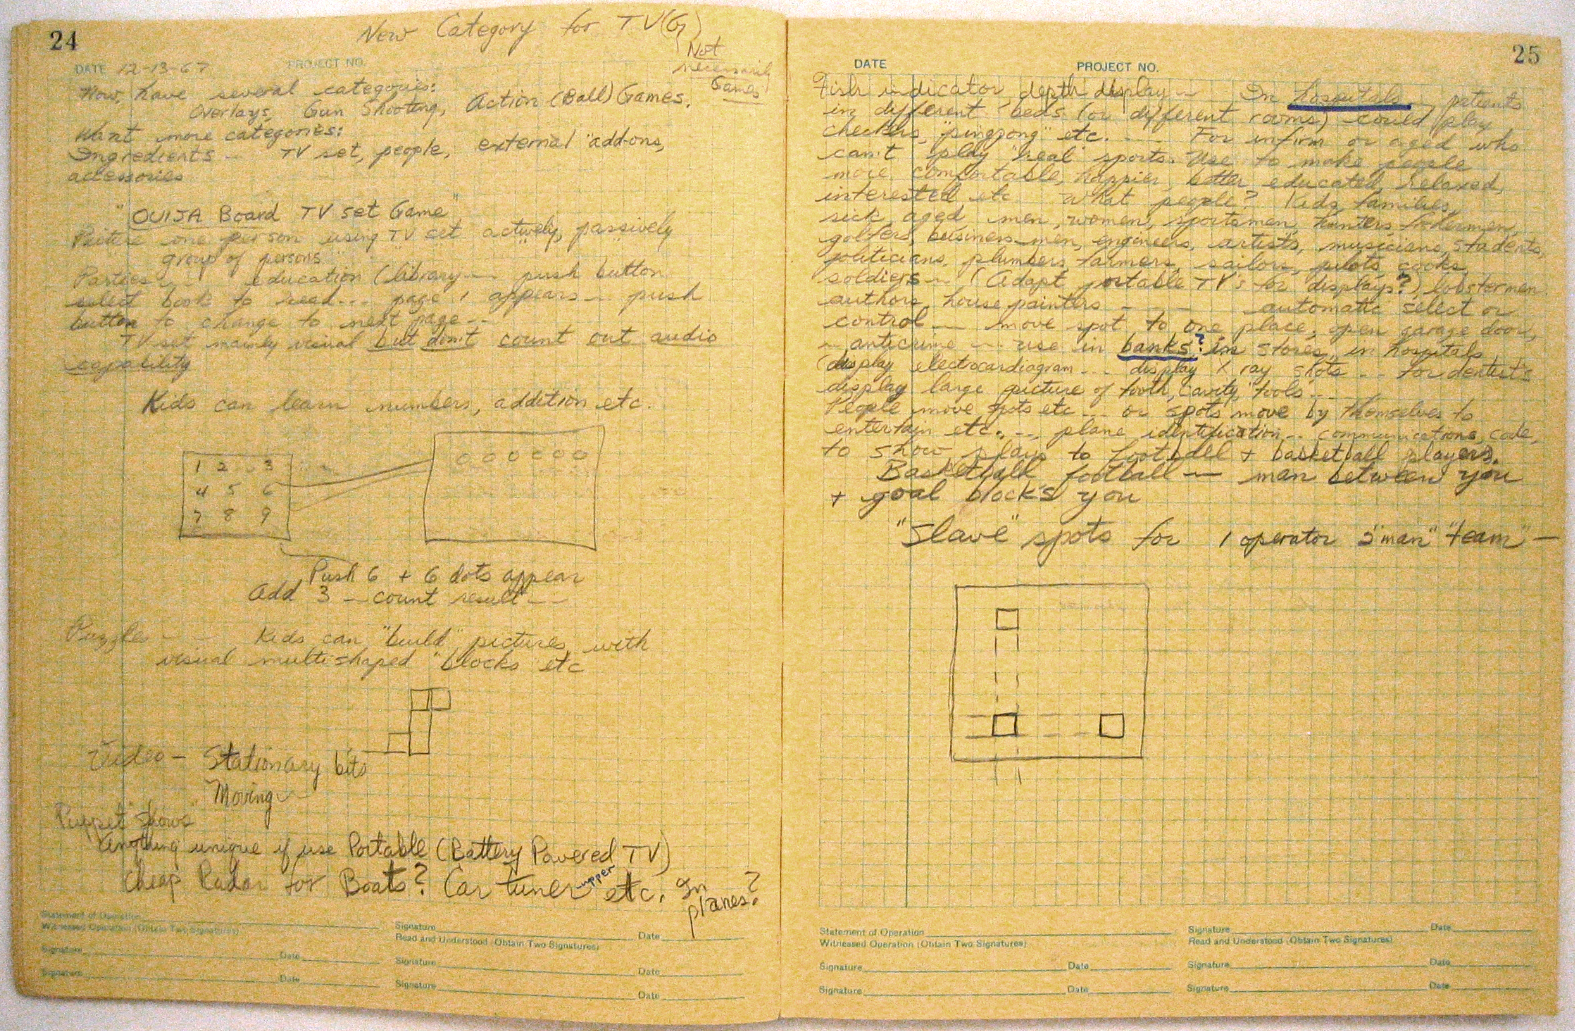 24
New Category for TV(G)
(Not
necessarily
Games
DATE 12-13-67 PROJECT NO.
Now, have several categories:
Overlays, Gun Shooting, Action (Ball) Games.
Want more categories:
Ingredients — TV set, people, external "add-ons,
accessories
"OUIJA Board TV set Game"
Picture one person using TV set actively, passively
group of persons
Parties — education (library — push button
select book to read... page 1 appears — push
button to change to next page --
TV set mainly visual but don't count out audio
capability
Kids can learn numbers, addition etc.
1 2 3
4 5 6
7 8 9
O O O O O O
Push 6 + 6 dots appear
Add 3 — count result —
Puzzles — Kids can "build" pictures with
visual multishaped "blocks" etc
Video — Stationary bits
Moving —
Puppet "Shows"
Anything unique if use Portable (Battery Powered TV)
Cheap Radar for Boats? Car tuner upper etc. In
planes?
Statement of Operation
Witnessed Operation (Obtain Two Signatures)
Signature Date
Signature Date
Signature Date
Read and Understood (Obtain Two Signatures)
Signature Date
Signature Date
25
DATE PROJECT NO.
Fish indicator depth display — In hospitals, patients
in different beds (or different rooms) could play
checkers, pingpong" etc. — For infirm or aged who
can't play "real" sports. Use to make people
more comfortable, happier, better educated, relaxed,
interested, etc what people? Kids, families,
sick, aged men, women, sportsmen, hunters fishermen,
golfers, business men, engineers, artists, musicians, students,
politicians, plumbers farmers, sailors, pilots, cooks,
soldiers — (Adapt portable TV's for displays?) lobstermen
authors, house painters — automatic select or
control — move spot to one place, open garage door,
— anticrime — use in banks? in stores, in hospitals
(display electrocardiogram... display X ray shots... for dentists
display large picture of tooth, cavity, "tools"...
People move spots etc... or spots move by themselves to
entertain etc. —, plane identification.. communications, code,
to show plays to football + basketball players.
Basketball football — man between you
+ goal blocks you
"Slave" spots for 1 operator 3"man" "team" —
Statement of Operation
Witnessed Operation (Obtain Two Signatures)
Signature Date
Signature Date
Signature Date
Read and Understood (Obtain Two Signatures)
Signature Date
Signature Date